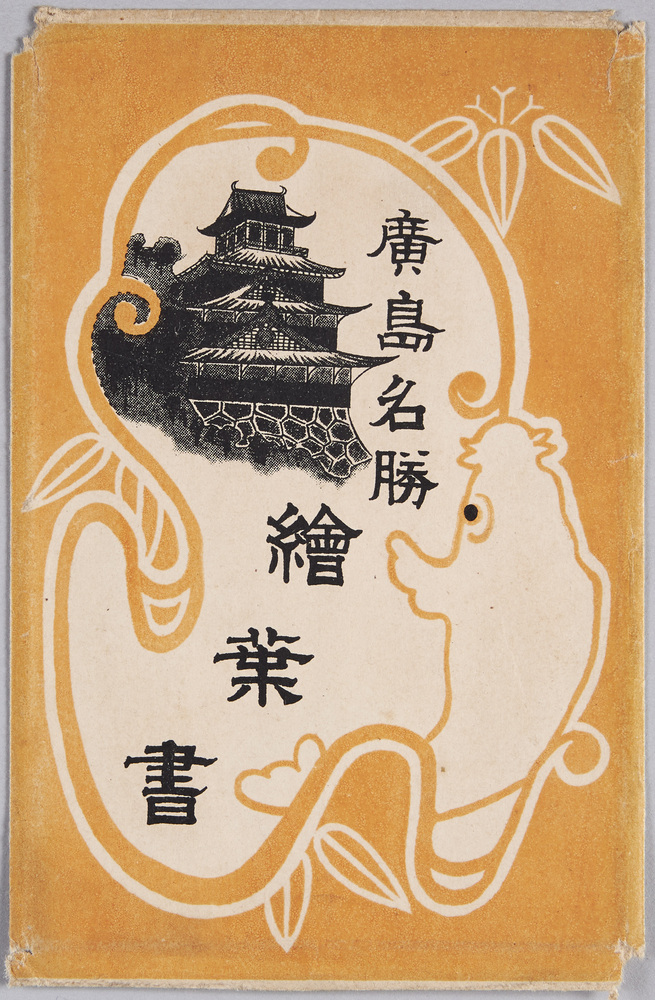 廣島名勝
繪葉書